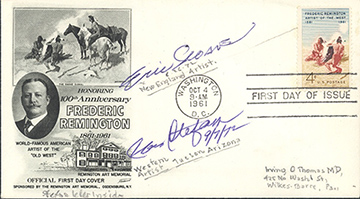 HONORING
100th Anniversary
FREDERIC
REMINGTON
1861-1961
WORLD-FAMOUS AMERICAN
ARTIST OF THE
"OLD WEST"
REMINGTON ART MEMORIAL
OFFICIAL FIRST DAY COVER
SPONSORED BY THE REMINGTON ART MEMORIAL, OGDENSBURG, N.Y.
Eric Sloane
New England Artist.
Western
Artist Tucson Arizona
WASHINGTON
OCT 4
9-AM
1961
D.C.
FREDERIC REMINGTON
ARTIST OF THE WEST
4¢
U.S. POSTAGE
FIRST DAY OF ISSUE
Irving O Thomas MD.
Wilkes-Barre,